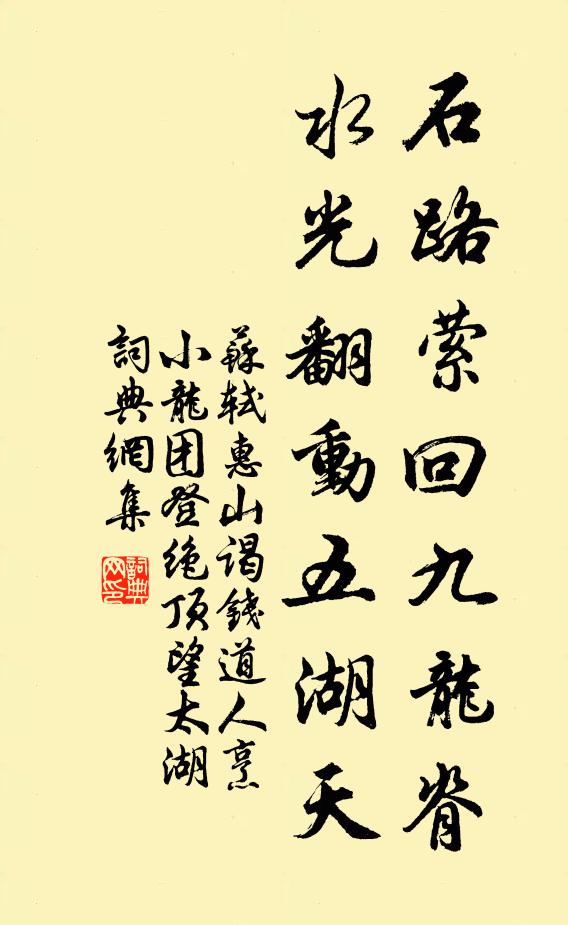 石路萦回九龍脊
水光翻動五湖天
蘇軾惠山谒錢道人烹
小龍团登绝頂望太湖
詞典網集
詞典網印